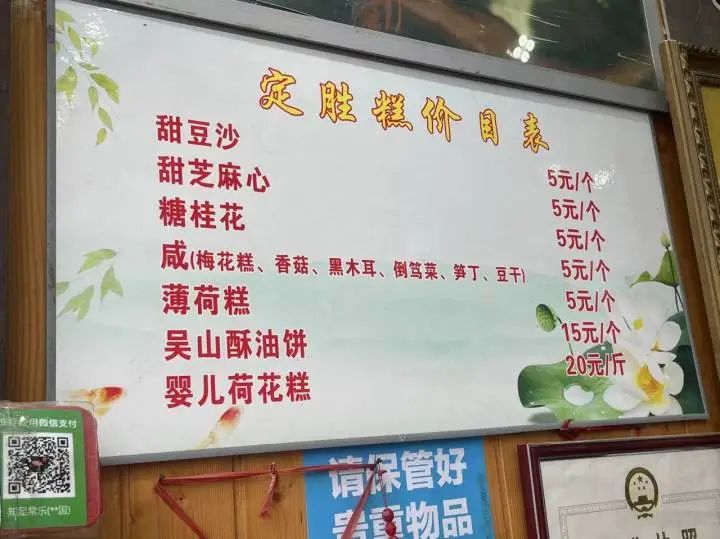 定胜糕价目表
甜豆沙 5元/个
甜芝麻心 5元/个
糖桂花 5元/个
咸(梅花糕、香菇、黑木耳、倒笃菜、笋丁、豆干) 5元/个
薄荷糕 5元/个
吴山酥油饼 15元/个
婴儿荷花糕 20元/斤
使用微信支付
知足常乐(**国)
请保管好
贵重物品